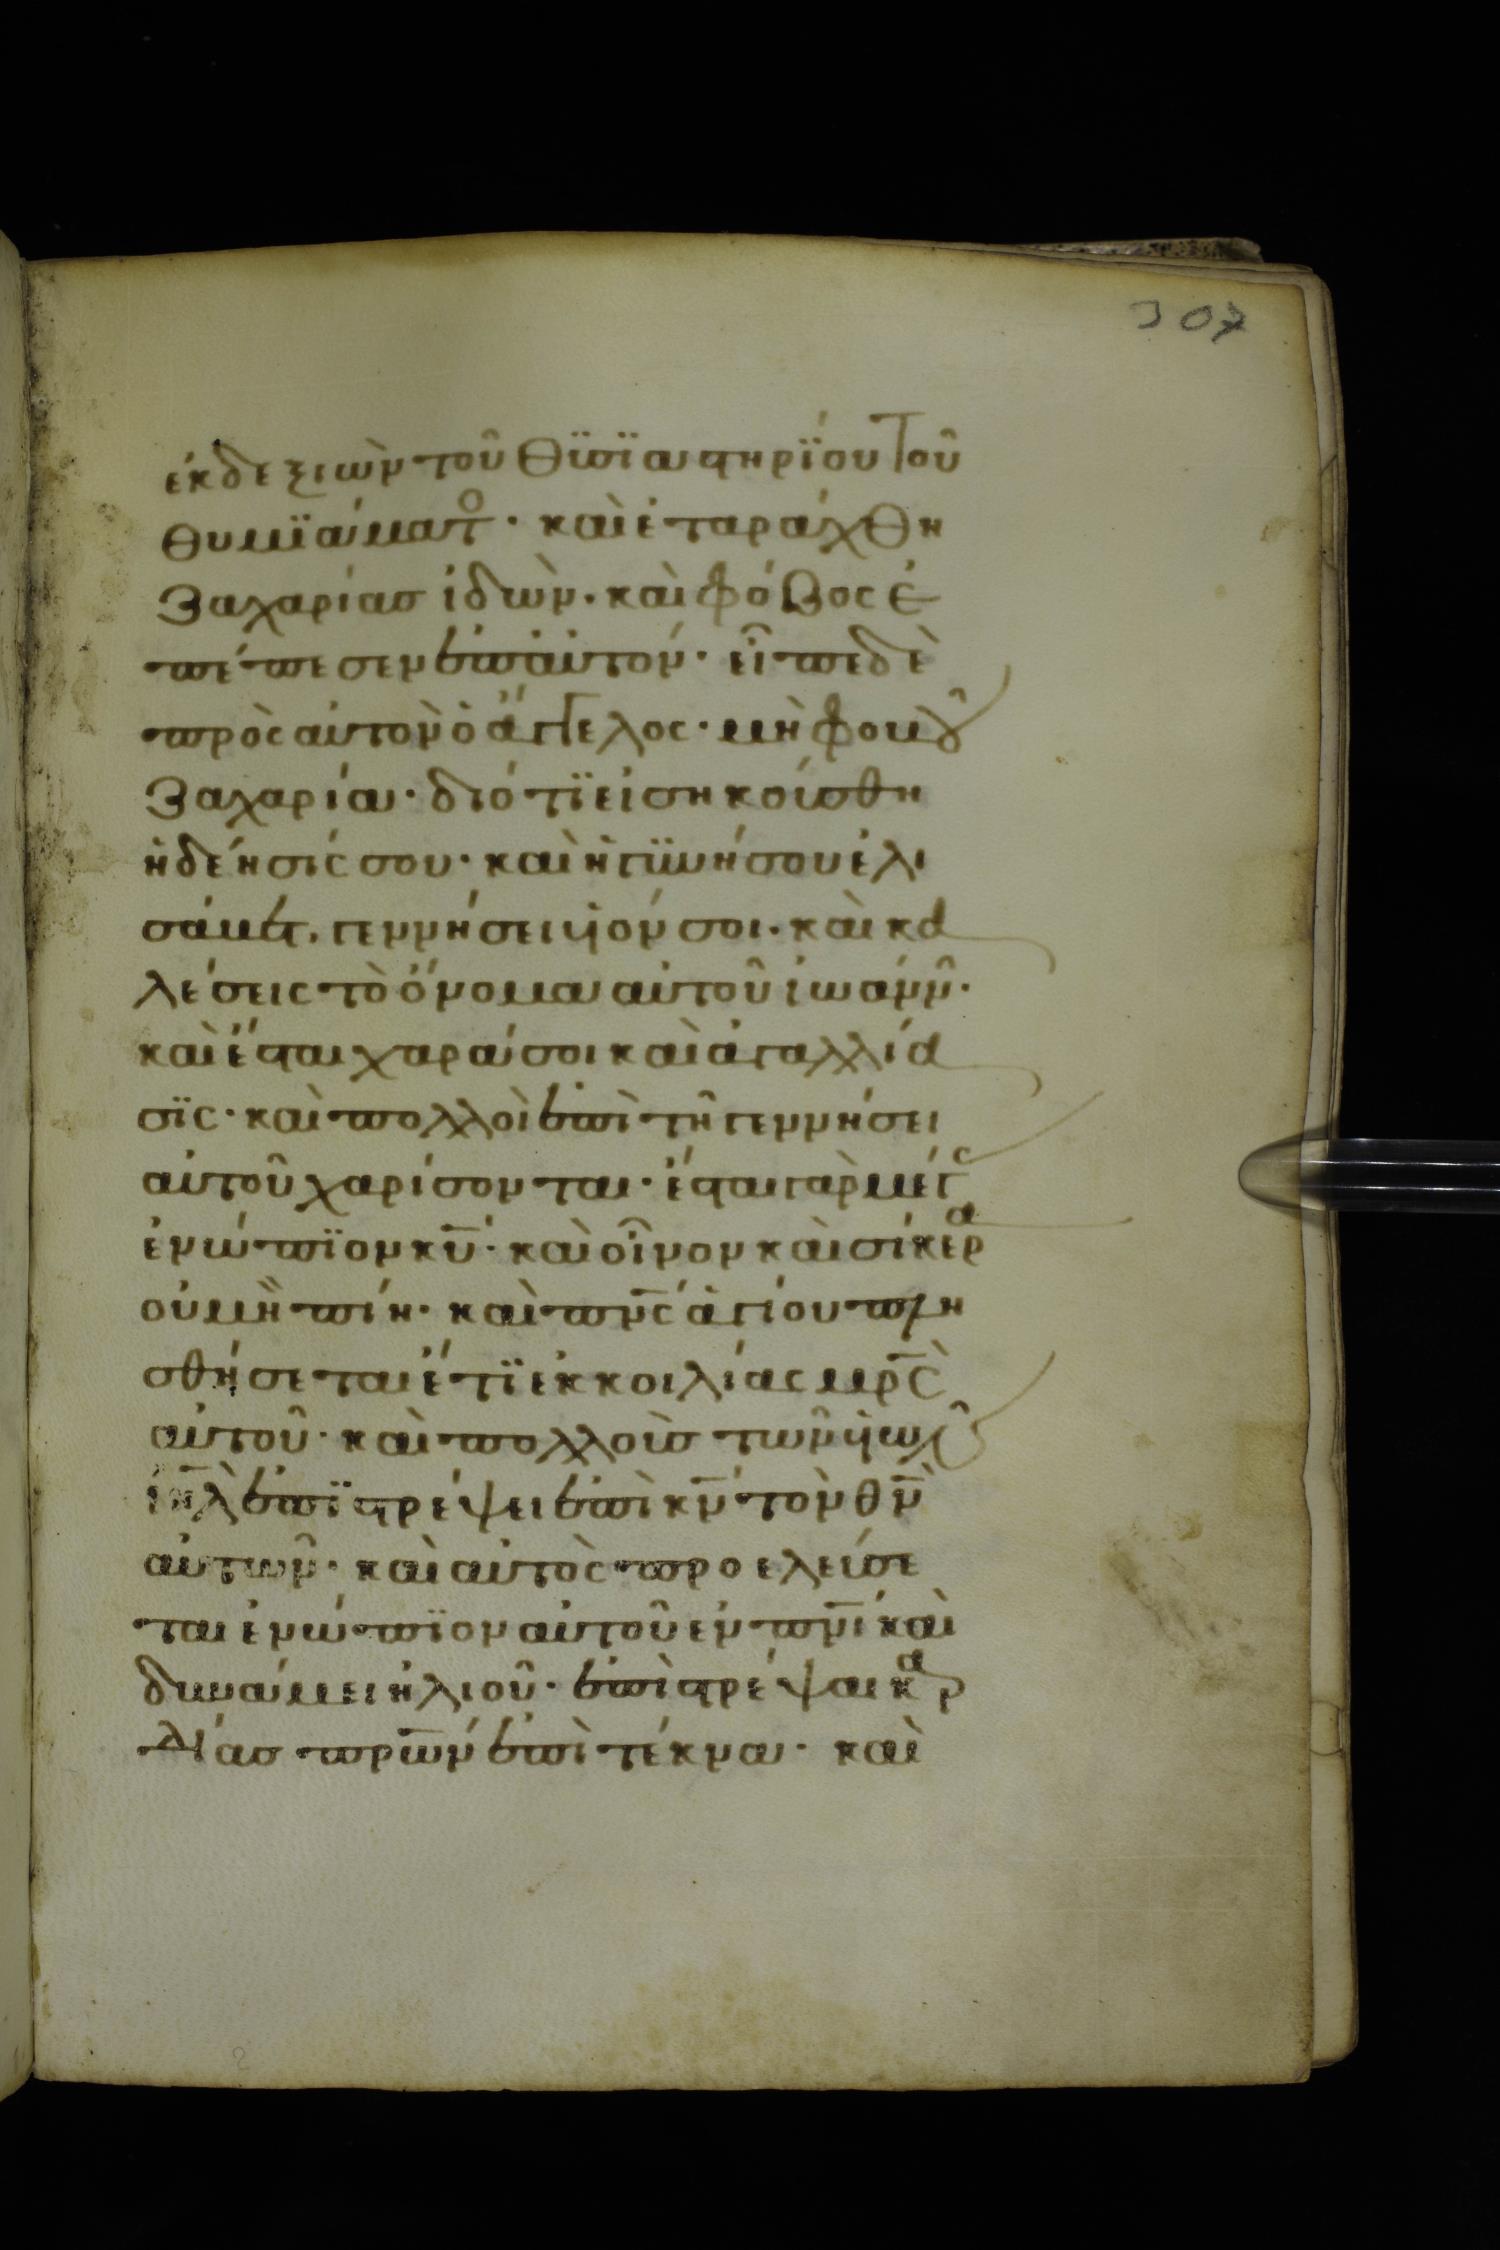 307
ἐκδεξιὼν τοῦ Θϋσϊαστηρΐου Τοῦ
θυμϊάματο · καὶ ἐταράχθη
Ζαχαρίασ ἰδὼν · καὶ φόβος ἐ
πέπεσεν ἐπ αὐτόν · εἶπε δὲ
πρὸς αὐτὸν ὁ ἄγγελος · μὴ φοβοῦ
Ζαχαρία · διότϊ εἰσηκούσθη
ἡ δέησίς σου · καὶ ἡ γϋνή σου ἐλι
σάβετ, γεννήσει ϋἱόν σοι · καὶ κα
λέσεις τὸ ὄνομα αὐτοῦ ἰωάνν ·
καὶ ἔσται χαρά σοι καὶ ἀγαλλία
σϊς · καὶ πολλοὶ ἐπὶ τῆ γεννήσει
αὐτοῦ χαρίσονται · ἔσται γὰρ μέγς
ἐνώπϊον κυ · καὶ οἶνον καὶ σίκερα
οὐ μὴ πίη · καὶ πνς ἁγίου πλη
σθήσεται ἔτϊ ἐκ κοιλίας μρς
αὐτοῦ · καὶ πολλοὺσ τῶν ϋἱῶν
ιηλ ἐπϊστρέψει ἐπὶ κν τὸν θν
αὐτῶν · καὶ αὐτὸς προελεύσε
ται ἐνώπϊον αὐτοῦ ἐν πνι καὶ
δυνάμει ἠλιοῦ · ἐπὶστρέψαι καρ
δίασ πρων ἐπὶ τέκνα · καὶ